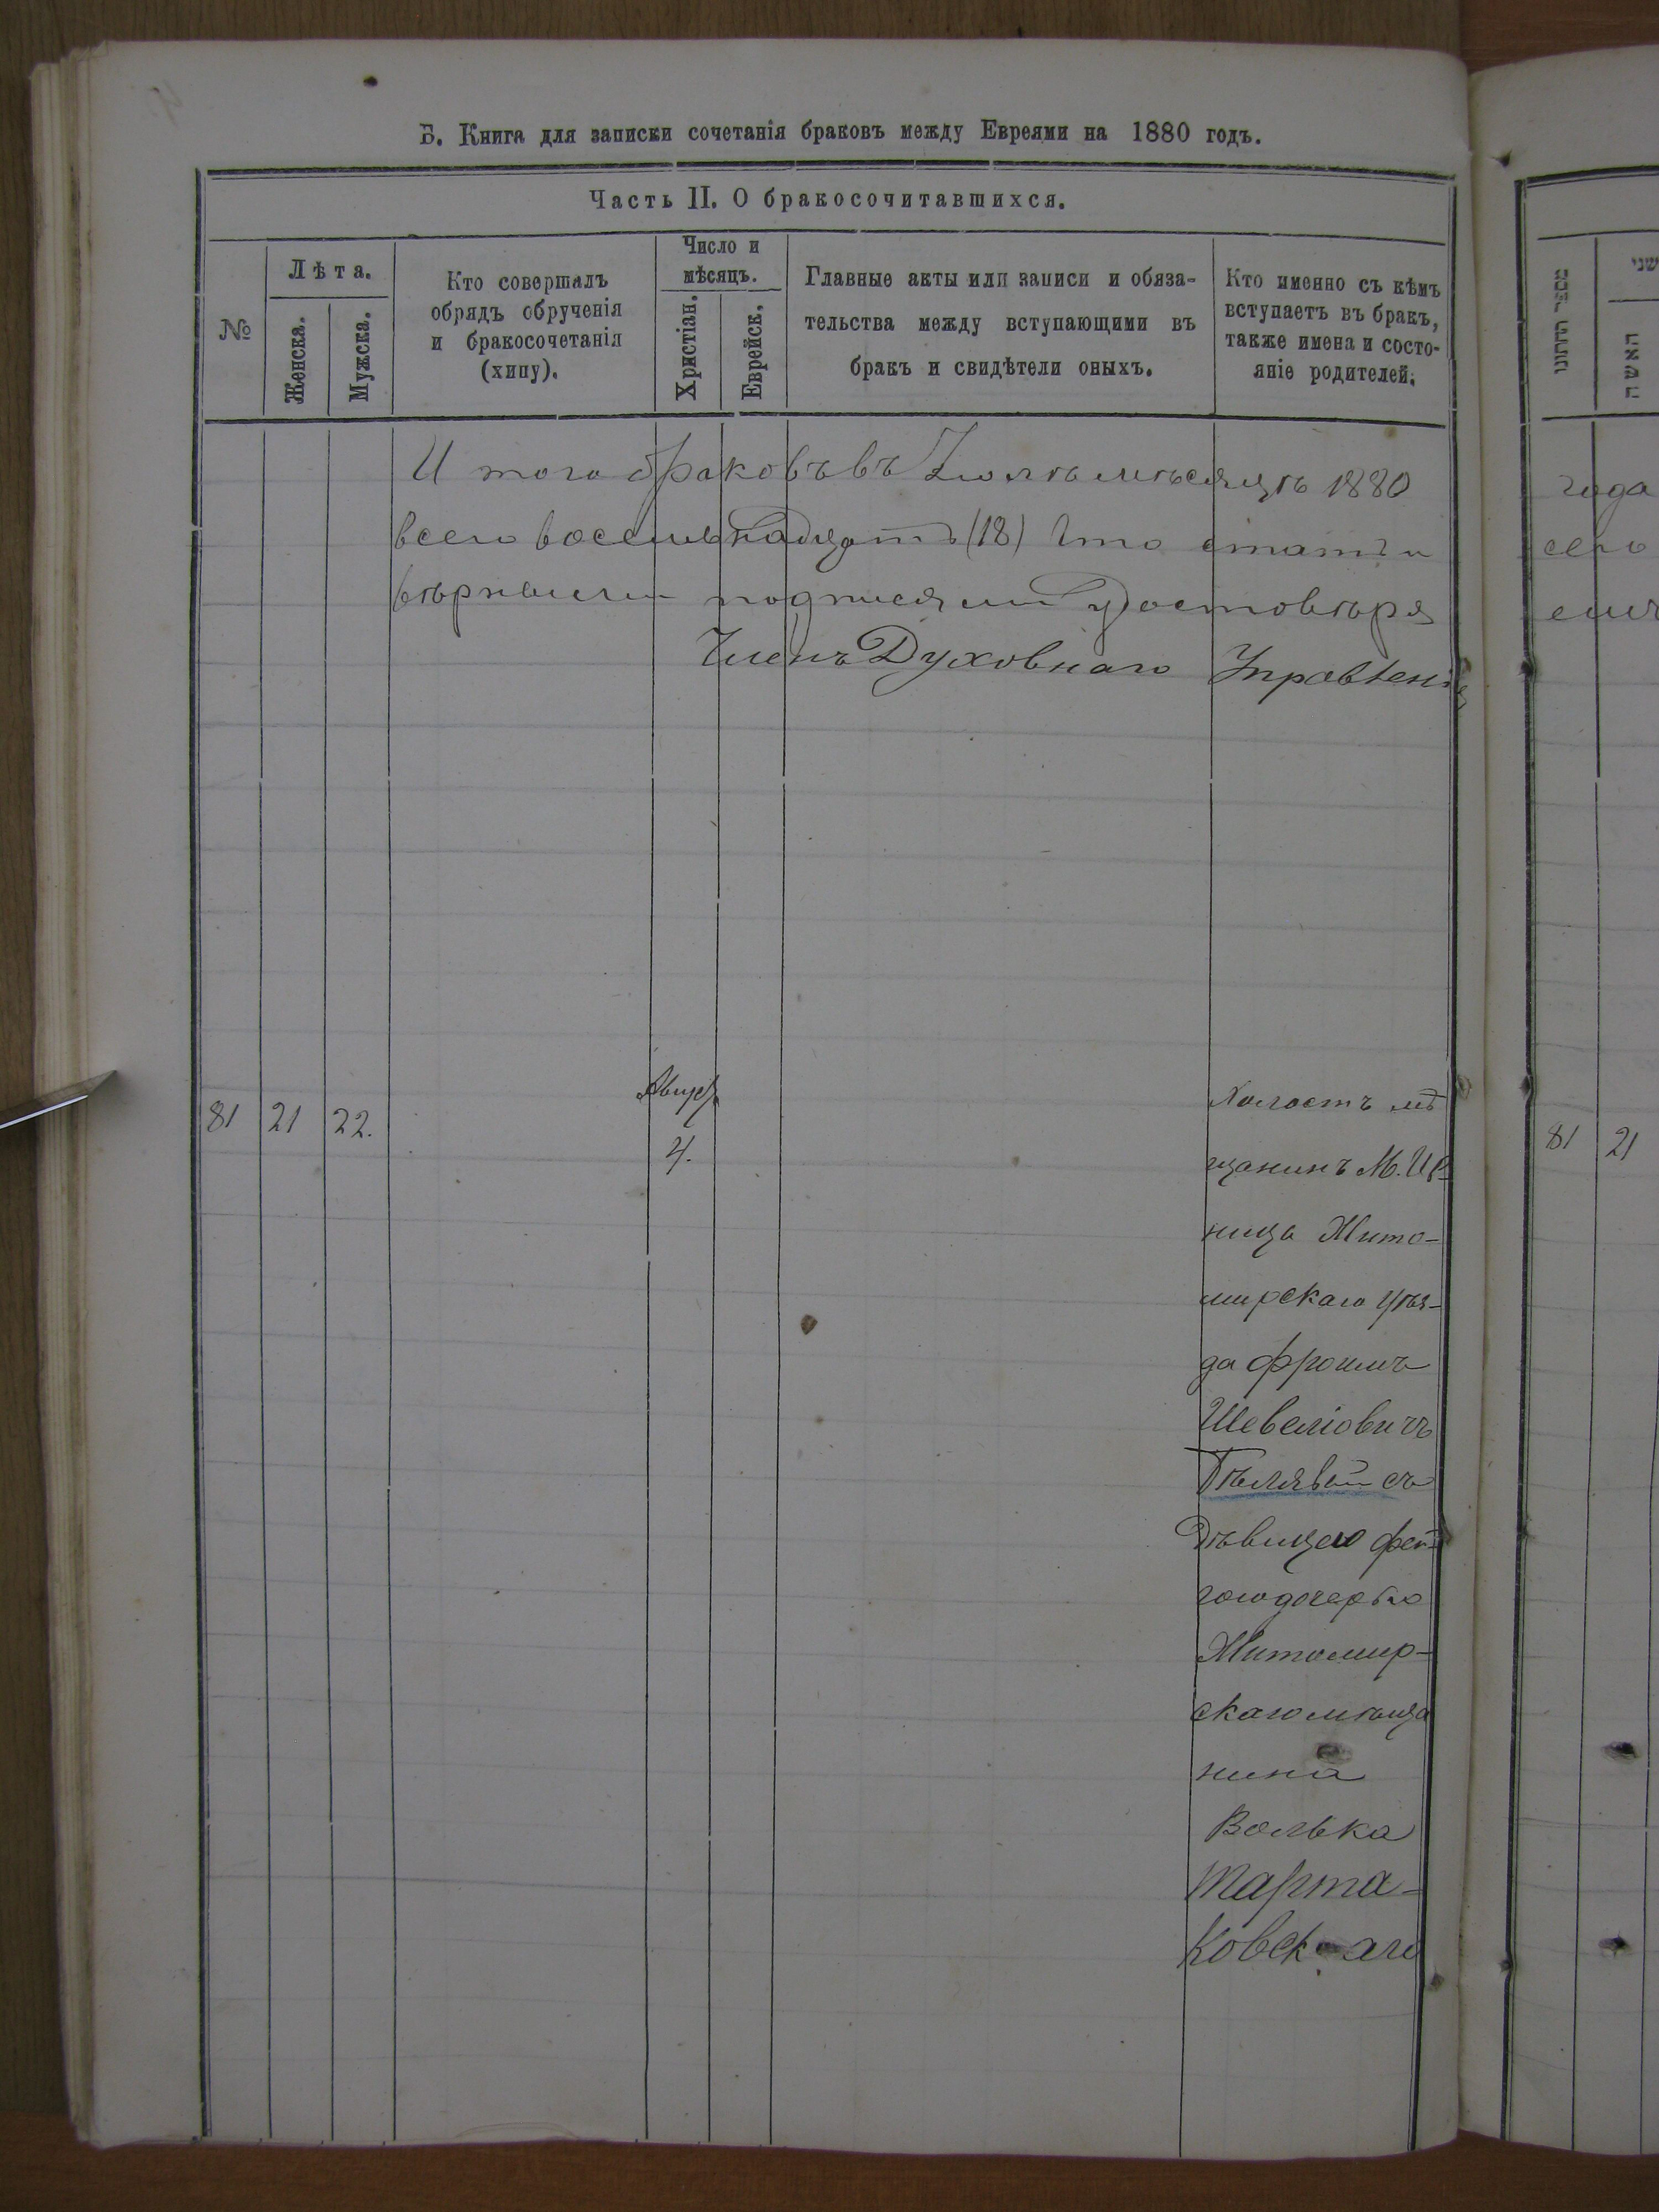 Б. Книга для записки сочетанія браковъ между Евреями на 1880 годъ.
Часть II. О бракосочитавшихся.
№
Лѣта.
Женска.
Мужска.
Кто совершалъ
обрядъ обрученія
и бракосочетанія
(хипу).
Число и
мѣсяцъ.
Христіан.
Еврейск.
Главные акты или записи и обяза-
тельства между вступающими въ
бракъ и свидѣтели оныхъ.
Кто именно съ кѣмъ
вступаетъ въ бракъ,
также имена и состо-
яніе родителей.
И того браковъ въ Іюлѣ мѣсяцѣ 1880
всего восемьнадцать (18) Что
подписями удостовѣря
Членъ Духовнаго Управленія
81 21 22.
Август
4.
Холостъ мѣ
щанинъ М.
ница Жито-
мирскаго уѣз-
да Фроимъ
Шевеліовичъ
съ
Дѣвицею Фей-
гою дочерью
Житомир-
скаго мѣща
нина
Волька
Марта-
ковскаго
מספר החתונו
שני
האשה
года
81 21